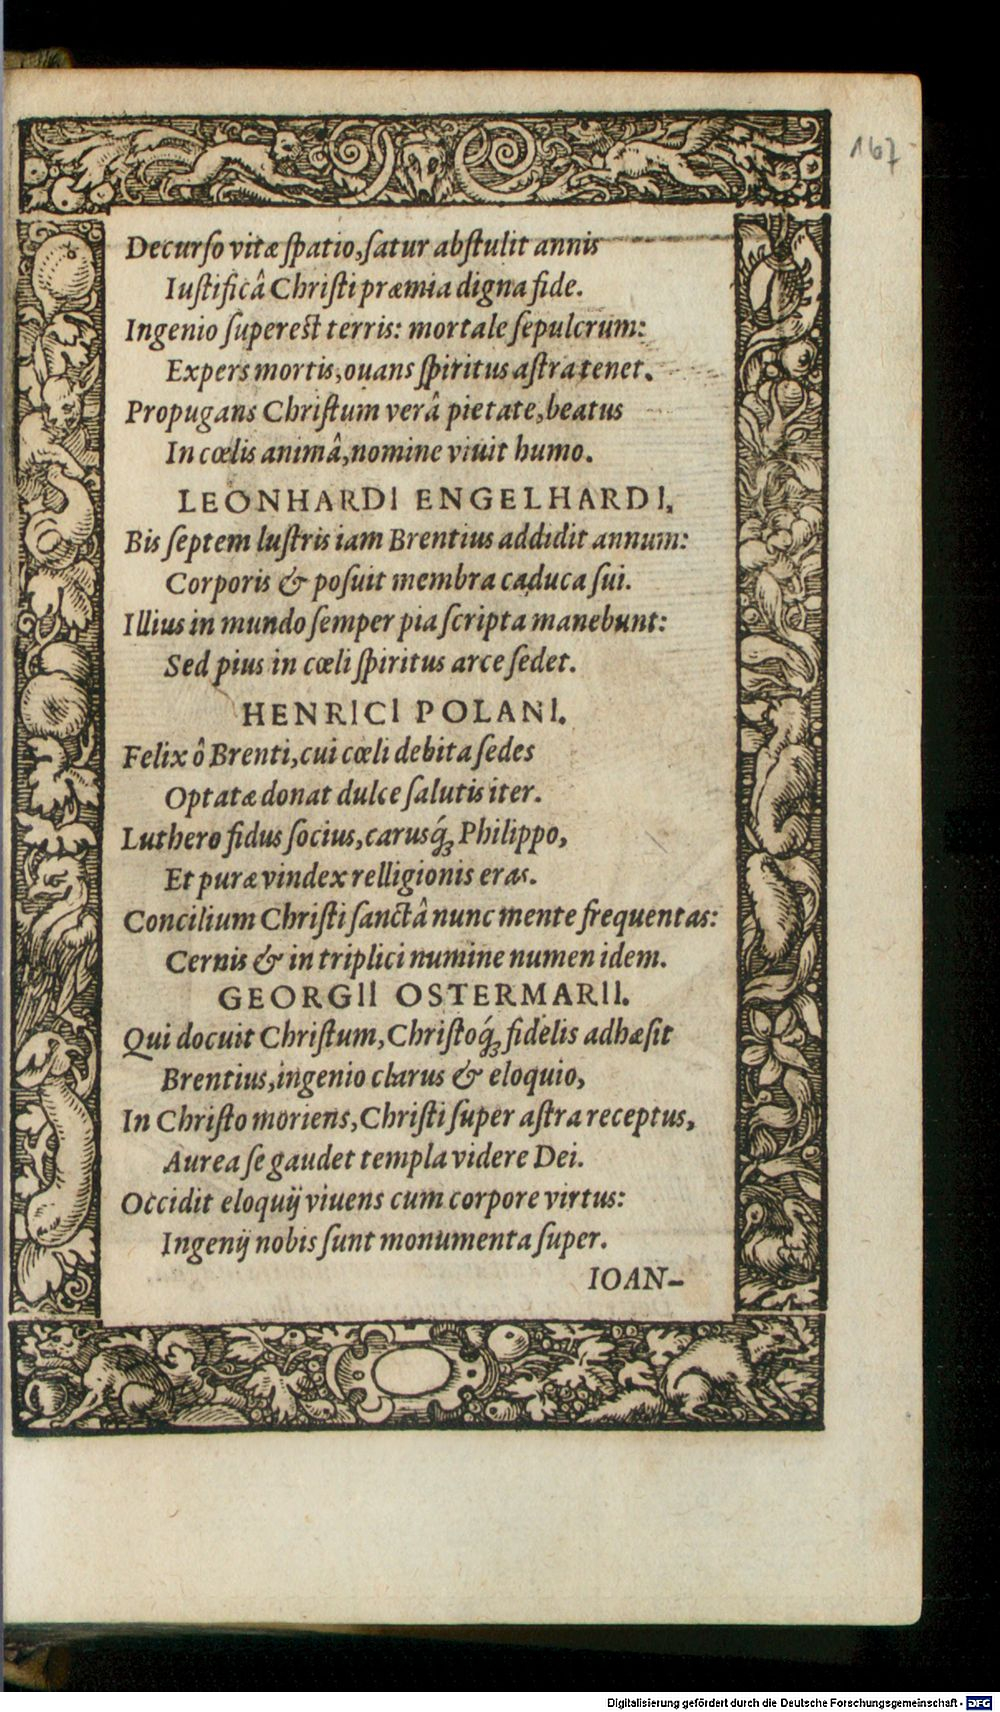 167
Decurſo vitæ ſpatio, ſatur abſtulit annis
Iuſtificâ Chriſti præmia digna fide.
Ingenio ſupereſt terris: mortale ſepulcrum:
Expers mortis, ouans ſpiritus aſtra tenet.
Propugans Chriſtum verâ pietate, beatus
In cœlis animâ, nomine viuit humo.
LEONHARDI ENGELHARDI.
Bis ſeptem luſtris iam Brentius addidit annum:
Corporis & poſuit membra caduca ſui.
Illius in mundo ſemper pia ſcripta manebunt:
Sed pius in cœli ſpiritus arce ſedet.
HENRICI POLANI.
Felix ô Brenti, cui cœli debita ſedes
Optatæ donat dulce ſalutis iter.
Luthero fidus ſocius, carusq́ꝫ Philippo,
Et puræ vindex relligionis eras.
Concilium Chriſti ſanctâ nunc mente frequentas:
Cernis & in triplici numine numen idem.
GEORGII OSTERMARII.
Qui docuit Chriſtum, Chriſtoq́ꝫ fidelis adhæſit
Brentius, ingenio clarus & eloquio,
In Chriſto moriens, Chriſti ſuper aſtra receptus,
Aurea ſe gaudet templa videre Dei.
Occidit eloquij viuens cum corpore virtus:
Ingenij nobis ſunt monumenta ſuper.
IOAN-
Digitalisierung gefördert durch die Deutsche Forschungsgemeinschaft - DFG